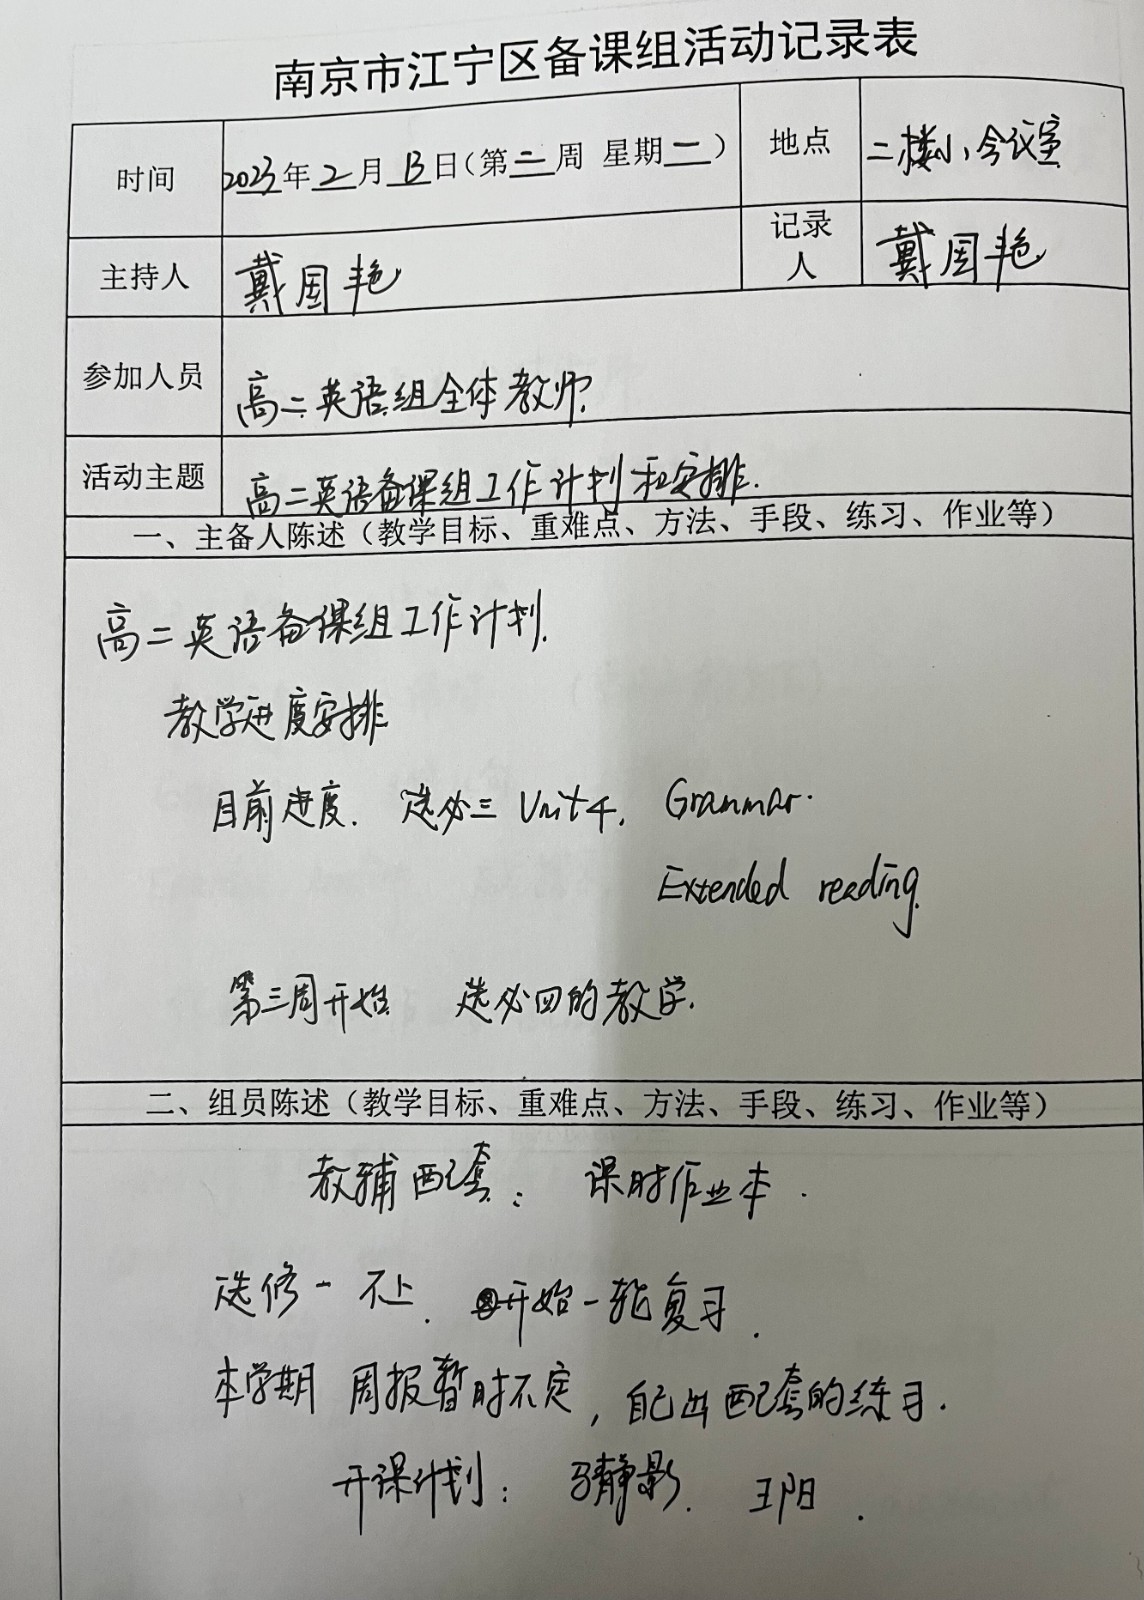 南京市江宁区备课组活动记录表
时间 2023年2月13日（第二周 星期一） 地点 二楼小会议室
主持人 戴国艳 记录人 戴国艳
参加人员 高二英语组全体教师.
活动主题 高二英语备课组工作计划和安排.
一、主备人陈述（教学目标、重难点、方法、手段、练习、作业等）
高二英语备课组工作计划.
教学进度安排
目前进度. 选必三 Unit4. Grammar.
Extended reading.
第三周开始 选必四的教学.
二、组员陈述（教学目标、重难点、方法、手段、练习、作业等）
教辅配套： 课时作业本.
选修一 不上. 开始一轮复习.
本学期 周报暂时不定，自己出配套的练习.
开课计划： 马静影. 王阳.